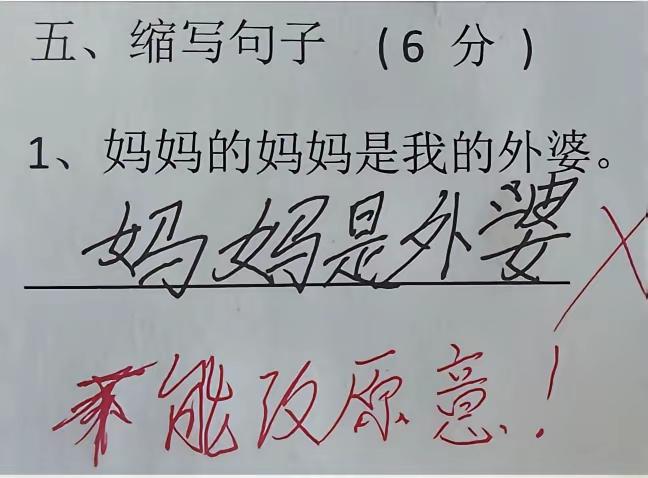 五、缩写句子 （6 分）
1、妈妈的妈妈是我的外婆。
妈妈是外婆
不能改原意！